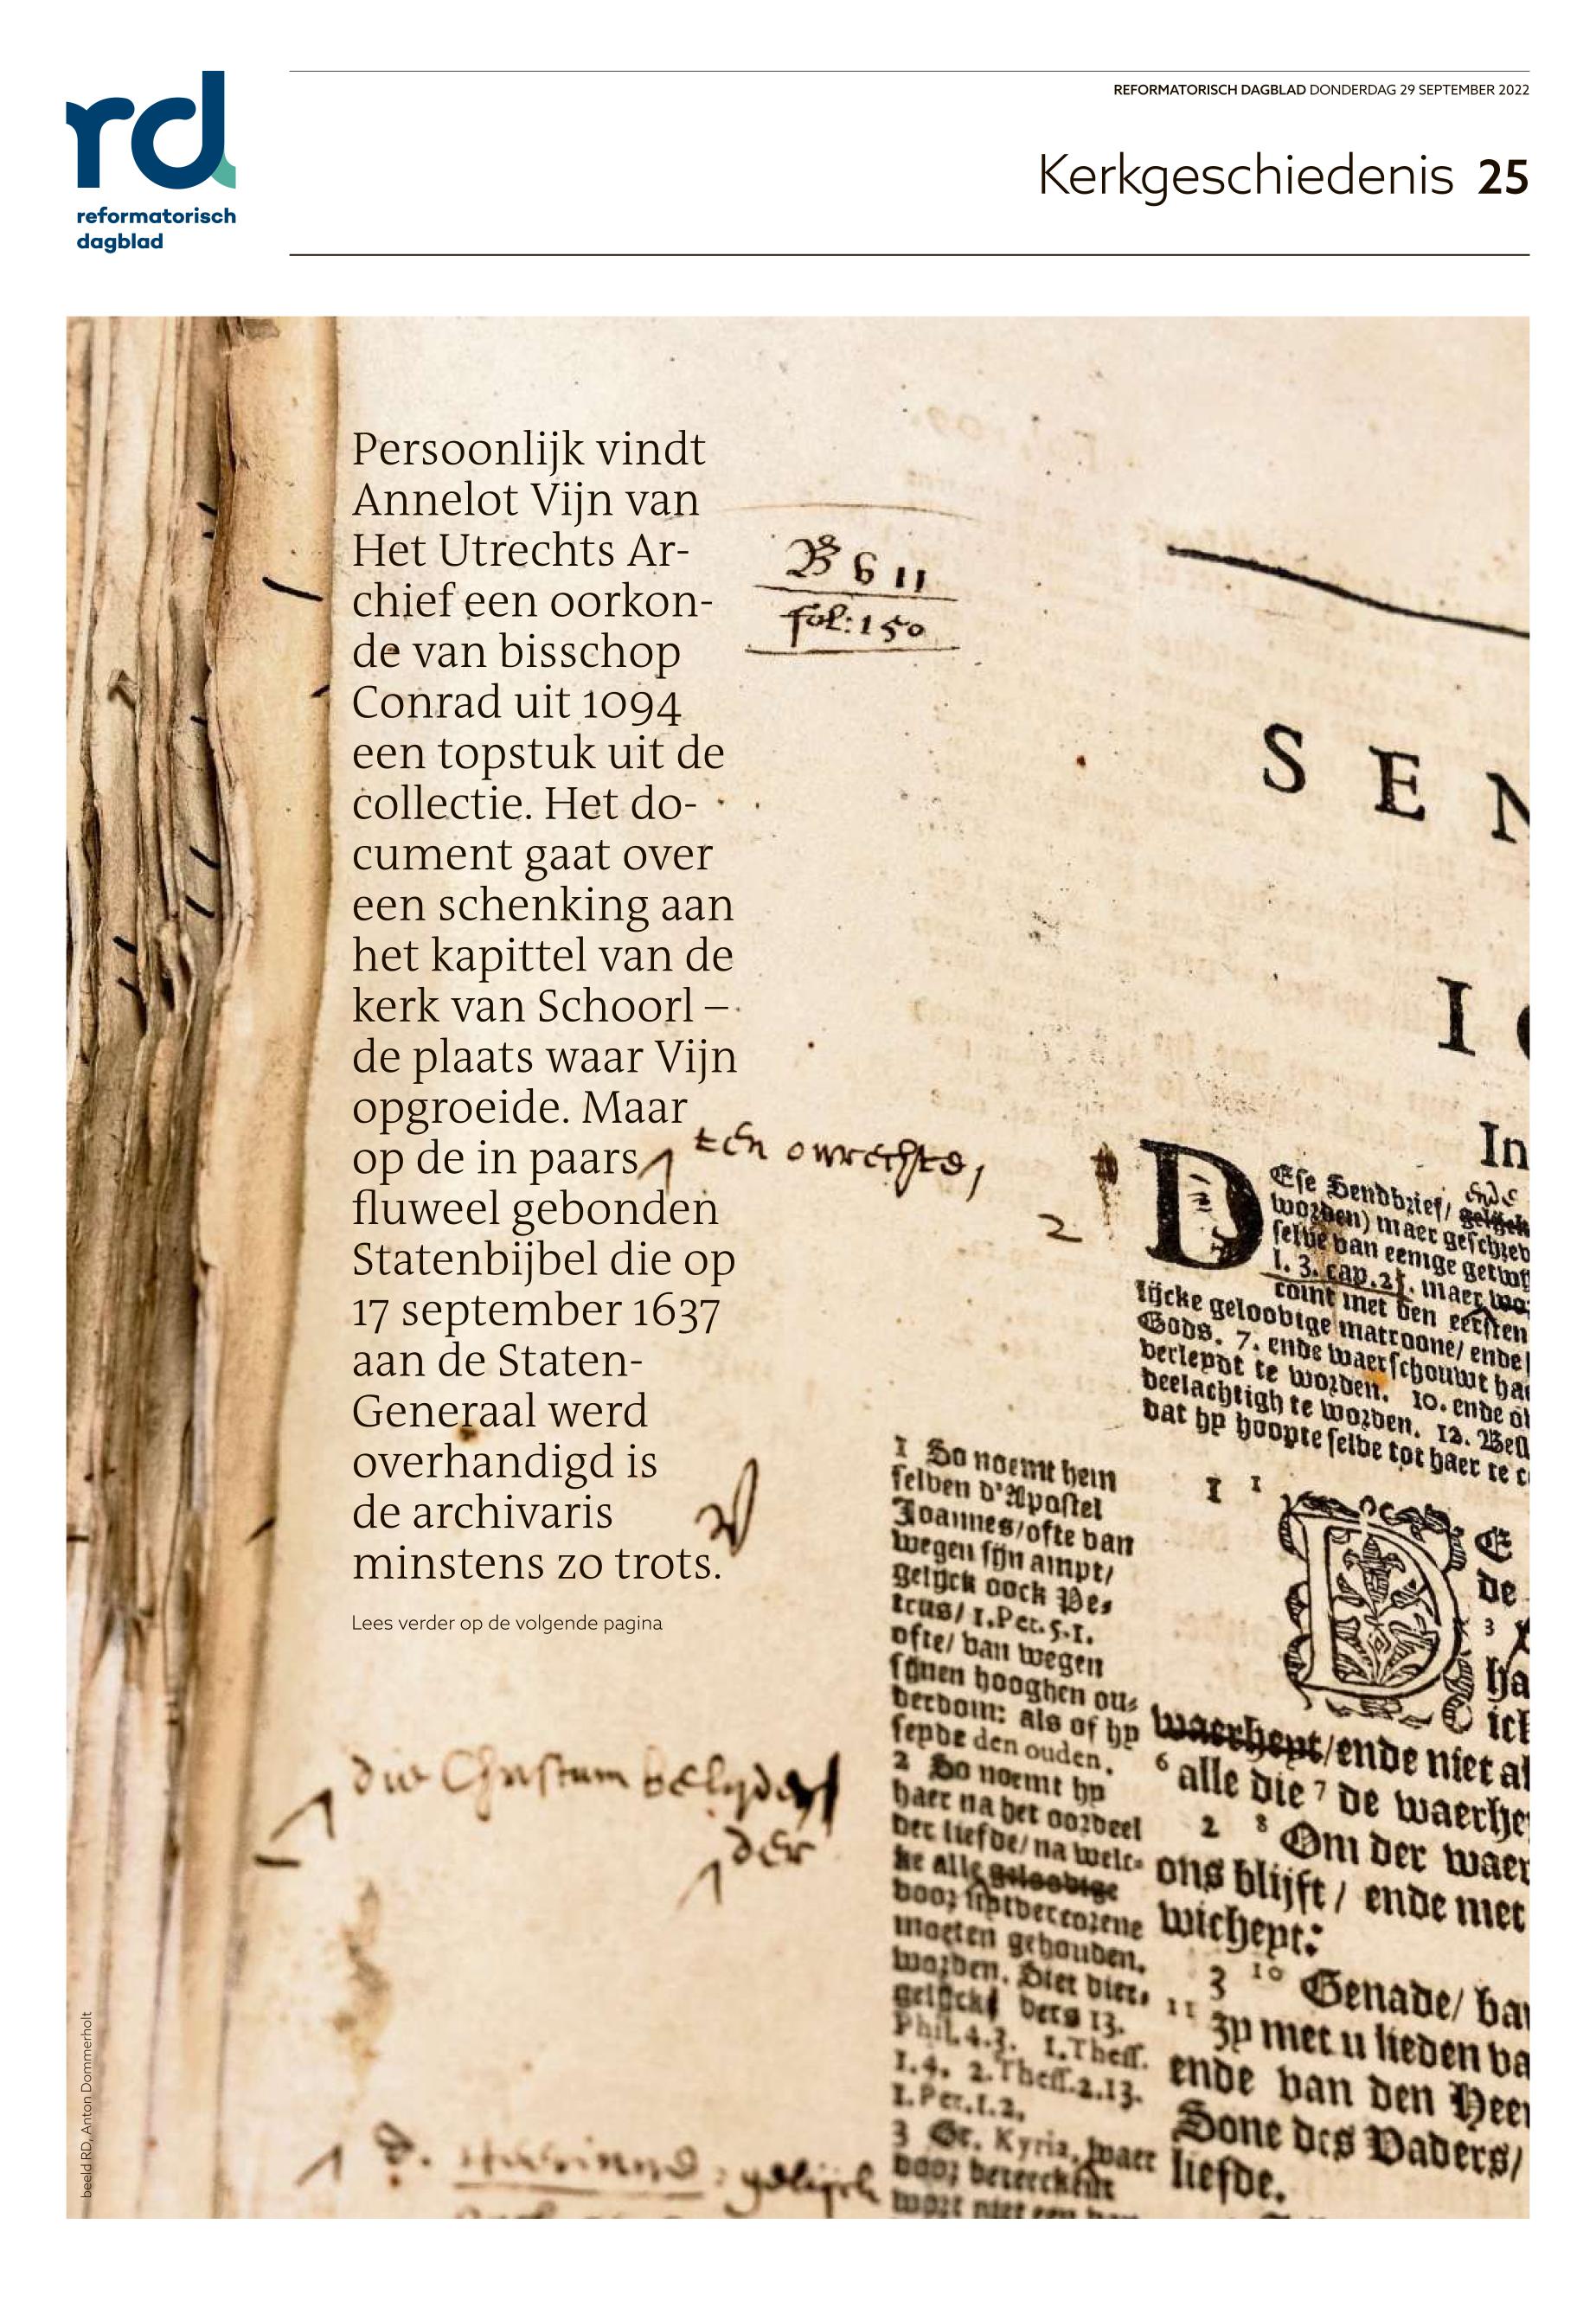 rd
reformatorisch
dagblad
REFORMATORISCH DAGBLAD DONDERDAG 29 SEPTEMBER 2022
Kerkgeschiedenis 25
Persoonlijk vindt
Annelot Vijn van
Het Utrechts Ar-
chief een oorkon-
de van bisschop
Conrad uit 1094
een topstuk uit de
collectie. Het do-
cument gaat over
een schenking aan
het kapittel van de
kerk van Schoorl –
de plaats waar Vijn
opgroeide. Maar
op de in paars
fluweel gebonden
Statenbijbel die op
17 september 1637
aan de Staten-
Generaal werd
overhandigd is
de archivaris
minstens zo trots.
Lees verder op de volgende pagina
B 6 11
fol: 150
S E N
I
In
2
DEse Sendbrief/ ende
worden) maer geschrev
selve van eenige
1. 3. cap. 21. maer
comt met den eersten
lijcke geloovige matroone/ ende
Gods. 7. ende waerschouwt ha
verleydt te worden. 10. ende
deelachtigh te worden. 12.
dat hy hoopte selve tot haer te
1 So noemt hem
selven d'Apostel
Joannes/ofte van
wegen sijn ampt/
gelijck oock Pe-
trus/ 1.Pet.5.1.
ofte/ van wegen
sijnen hooghen ou-
derdom: als of hy
seyde den ouden.
2 So noemt hy
haer na het oordeel
der liefde/ na welc-
ke alle geloovige
voor uytvercorene
moeten gehouden.
worden. Siet hier,
gelijck vers 13.
Phil.4.3. 1.Thess.
1.4. 2.Thess.2.13.
1.Pet.1.2.
3 Gr. Kyria, waer
door beteeckent
wort niet een
1 1
D E
de
3
ha
ick
waerheyt/ende niet al
6 alle die 7 de waerhe
2 8 Om der waer
ons blijft / ende met
wicheyt:
3 10 Genade/ ba
11 zy met u lieden va
ende van den Heer
Sone des Vaders/
liefde.
die Christum
der
gelijck
beeld RD, Anton Dommerholt